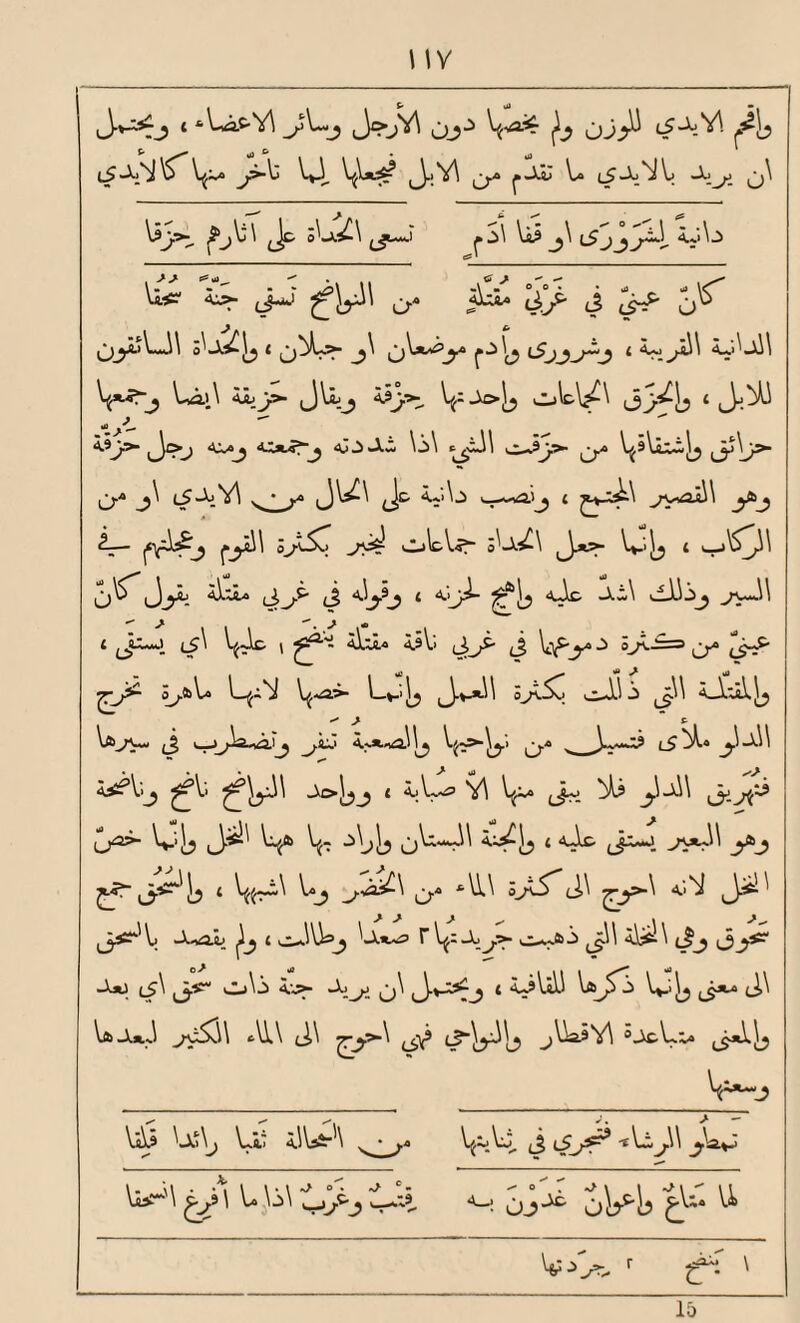 ١١٧
الايدى للزوق ولم يخصها دون الارجل وسائر الاعضاء ، ويحتمل
ان يريد بالايدى ما تقدم من الابل يجعلها لما تاخر منها كالايدى
دانِيةً لِشَرَوْرَى او قَفا أَدَمٍ تَسعى الحُداةُ على آثارِهم حِزَقا
كَأَنّ عَيْنَيَّ فى غَرْبَىْ مُقَتَّلَةٍ من النَواضِحِ تَسقى جَنَّةً سُحُقا
الدانية القريبة ، وشرورى وادم موضعان او جبلان ، والحداة السائقون
للابل ، والحزق الجماعات واحدها حزقة ويقال حزيقة ايضا وجمعها
حزائق واشتقاقها من حزقت الشىء اذا شددته وجمعته ومنه رجل حزقة
وهو القصير المجتمع ، ونصب دانية على الحال من الايدى او من
الركاب ، وانما جعل الحداة جماعات لغير كثرة القوم فى
السير وذلك اشد عليه واهيج لحزنه ، وقوله فى غربى مقتلة يقول كأن
عينىّ من كثرة دموعهما فى غربى ناقة مقتلة ينضح ١ عليها اى يستقى ،
والمقتلة التى ذللت بكثرة العمل وانما خصها لانها ماهرة تخرج
الدلو ملأى فتسيل من نواحيها والصعبة تنفر وتضطرب فى سيرها
فيهريق الدلو فلا يبقى منها الا صبابة ، وواحد النواضح ناضح وناضحة
وهو البعير يستقى عليه ، والجنة البستان واراد بها هنا النخل وانما خصّ
النخل لانه احوج الى كثرة الماء من الخضر وما اشبهها ، والسحق جمع
سحوق وهى النخلة التى ذهبت جريدتها ٢ صعدا وطالت ، ولم يقصد بالسحق
الى معنى وانما ذكرها للقافية ، ويحتمل ان يريد جنة ذات سحق اى بعد
والمعنى متباعدة الاقطار والنواحى فهى احوج الى الماء الكثير لبعدها
وسعتها
تمطو الرِشاءَ فتُجرى فى ثِنايَتِها من المَحالةِ ثَقبا رائِدا قَلِقا
لها مَتاعٌ واَعوانٌ غَدَوْنَ به قِتْبٌ وغَرْبٌ اذا ما أُفرِغَ انسَحَقا
١ ينضح ٢ جردتها
15